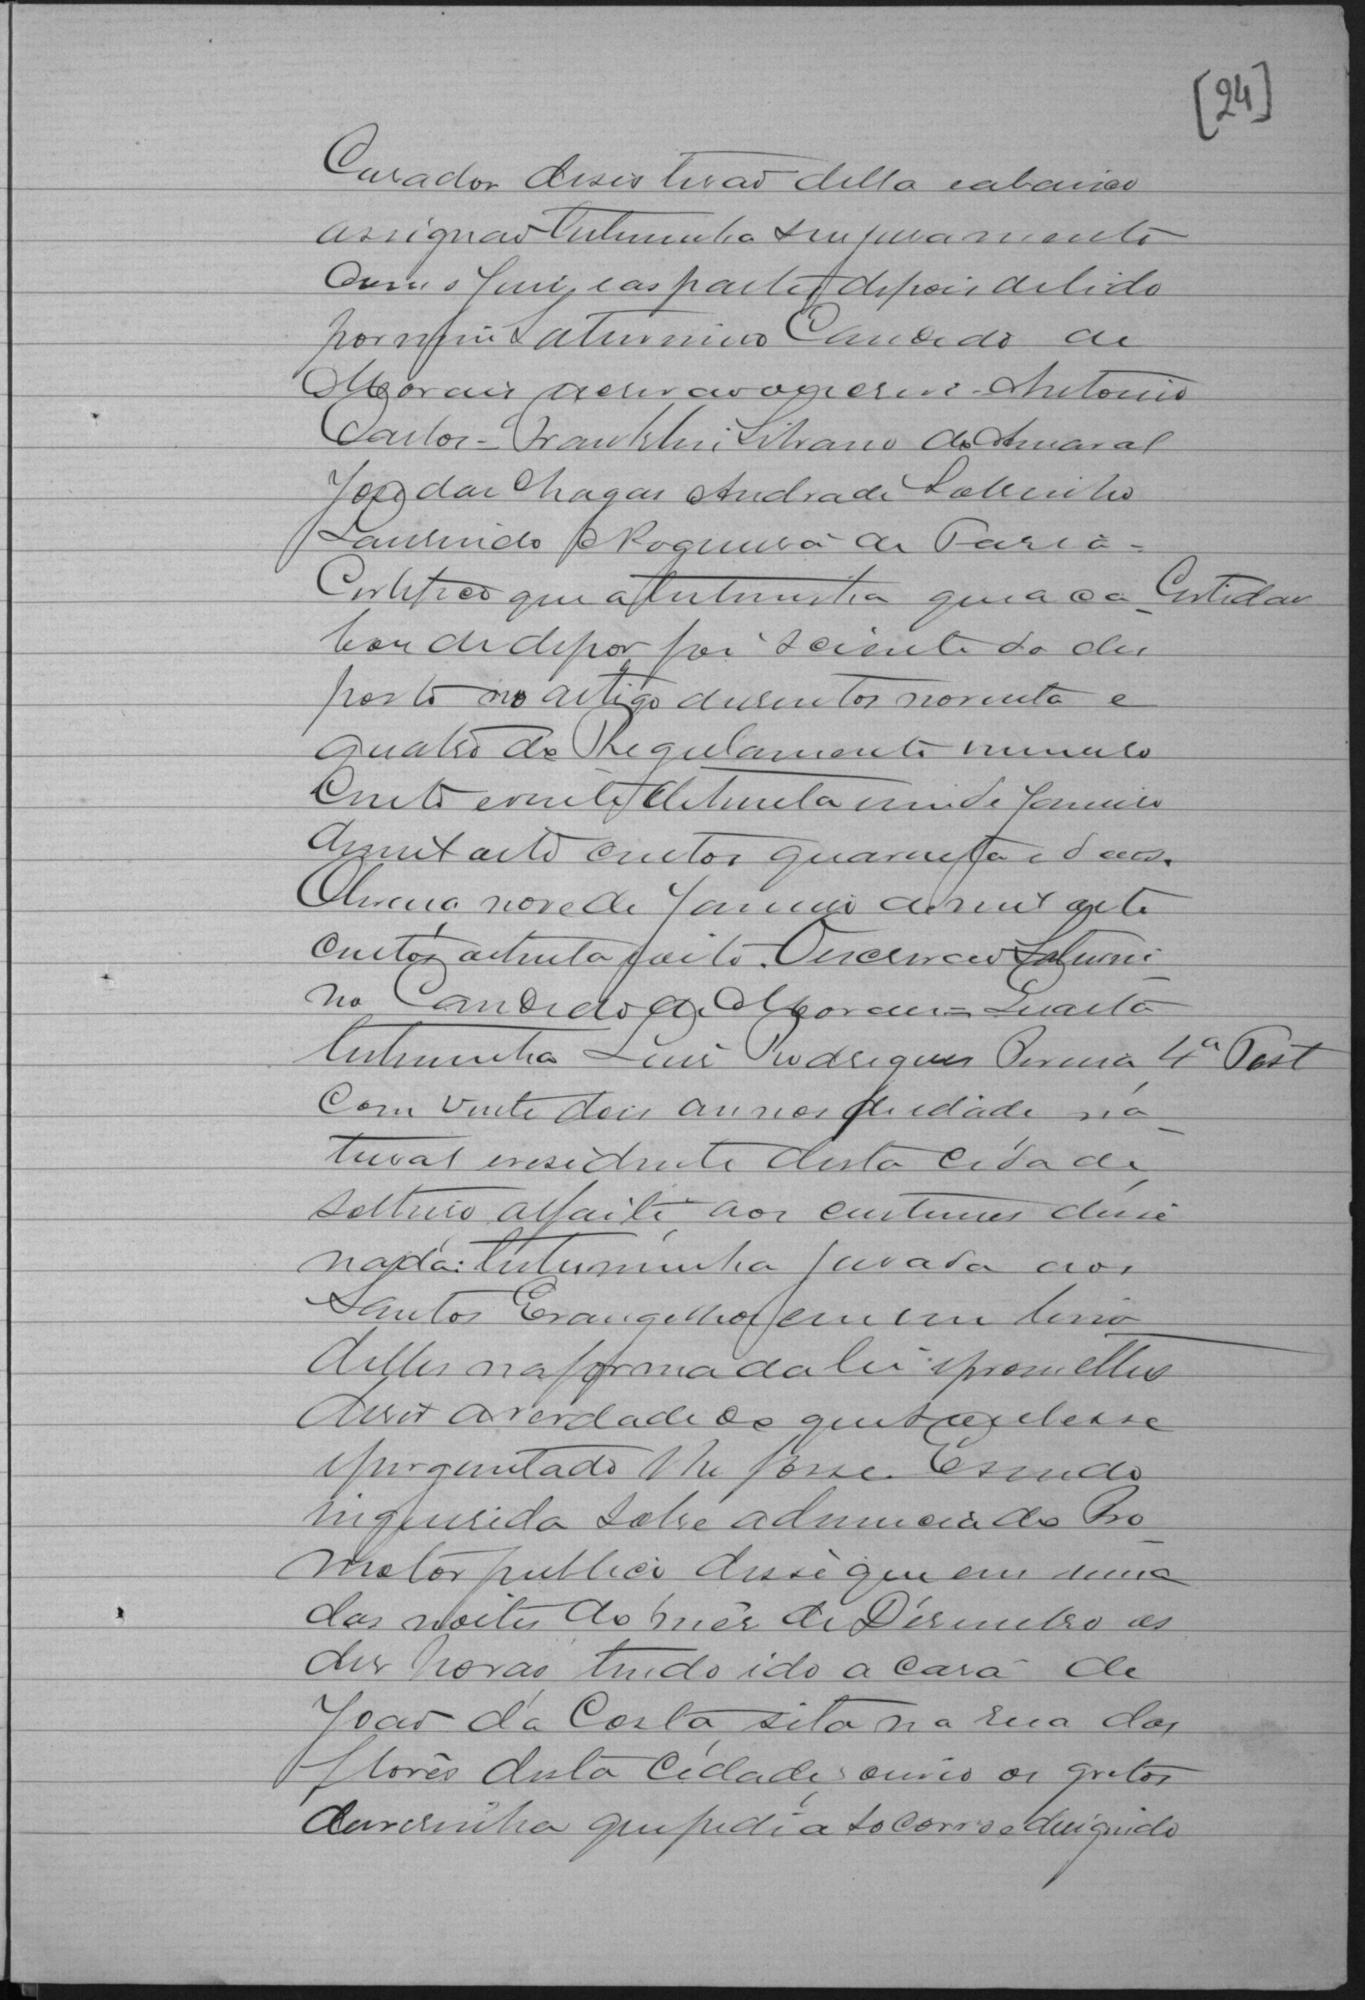 [24]
Curador desistirão della eabaixo
assignão testemunha seu juramento
com o Juiz, eas partes, depois de lido
por mim Saturnino Candido de
Moraes escrivão que escrevi - Antonio
Carlos = Franklin Silvano do Amaral
José das Chagas Andrade Sobrinho
Laurindo Nogueira de Faria =
Certifico que a testemunha que aca- Certidão
bou de depor foi sciente do dis
posto no artigo dusentos noventa e
quatro do Regulamento numero
Cento evinte, de trinta eum de Janeiro
demil oito centos quarenta e dous.
Oliveira nove de Janeiro de mil oito
centos, oitenta, oito. O escrivão Saturni-
no Candido de Moraes = Quarta
testemunha Luis Rodrigues Pereira 4ª Test
com vinte dois annos de idade na-
tural eresidente desta cidade
solteiro alfaiate, aos custumes disse
nada: testemunha jurada aos
Santos Evangelhos em um livro
delles na forma da lei eprometteo
diser averdade do que soubesse
eperguntado lhe fosse. Esendo
inquirida sobre adenuncia do Pro-
motor publico disse que em uma
das noites do mês de Desembro as
des horas, tendo ido a casa de
João da Costa, sita na rua das
flores desta Cidade, ouvio os gritos
davesinha que pedia socorro edirigindo